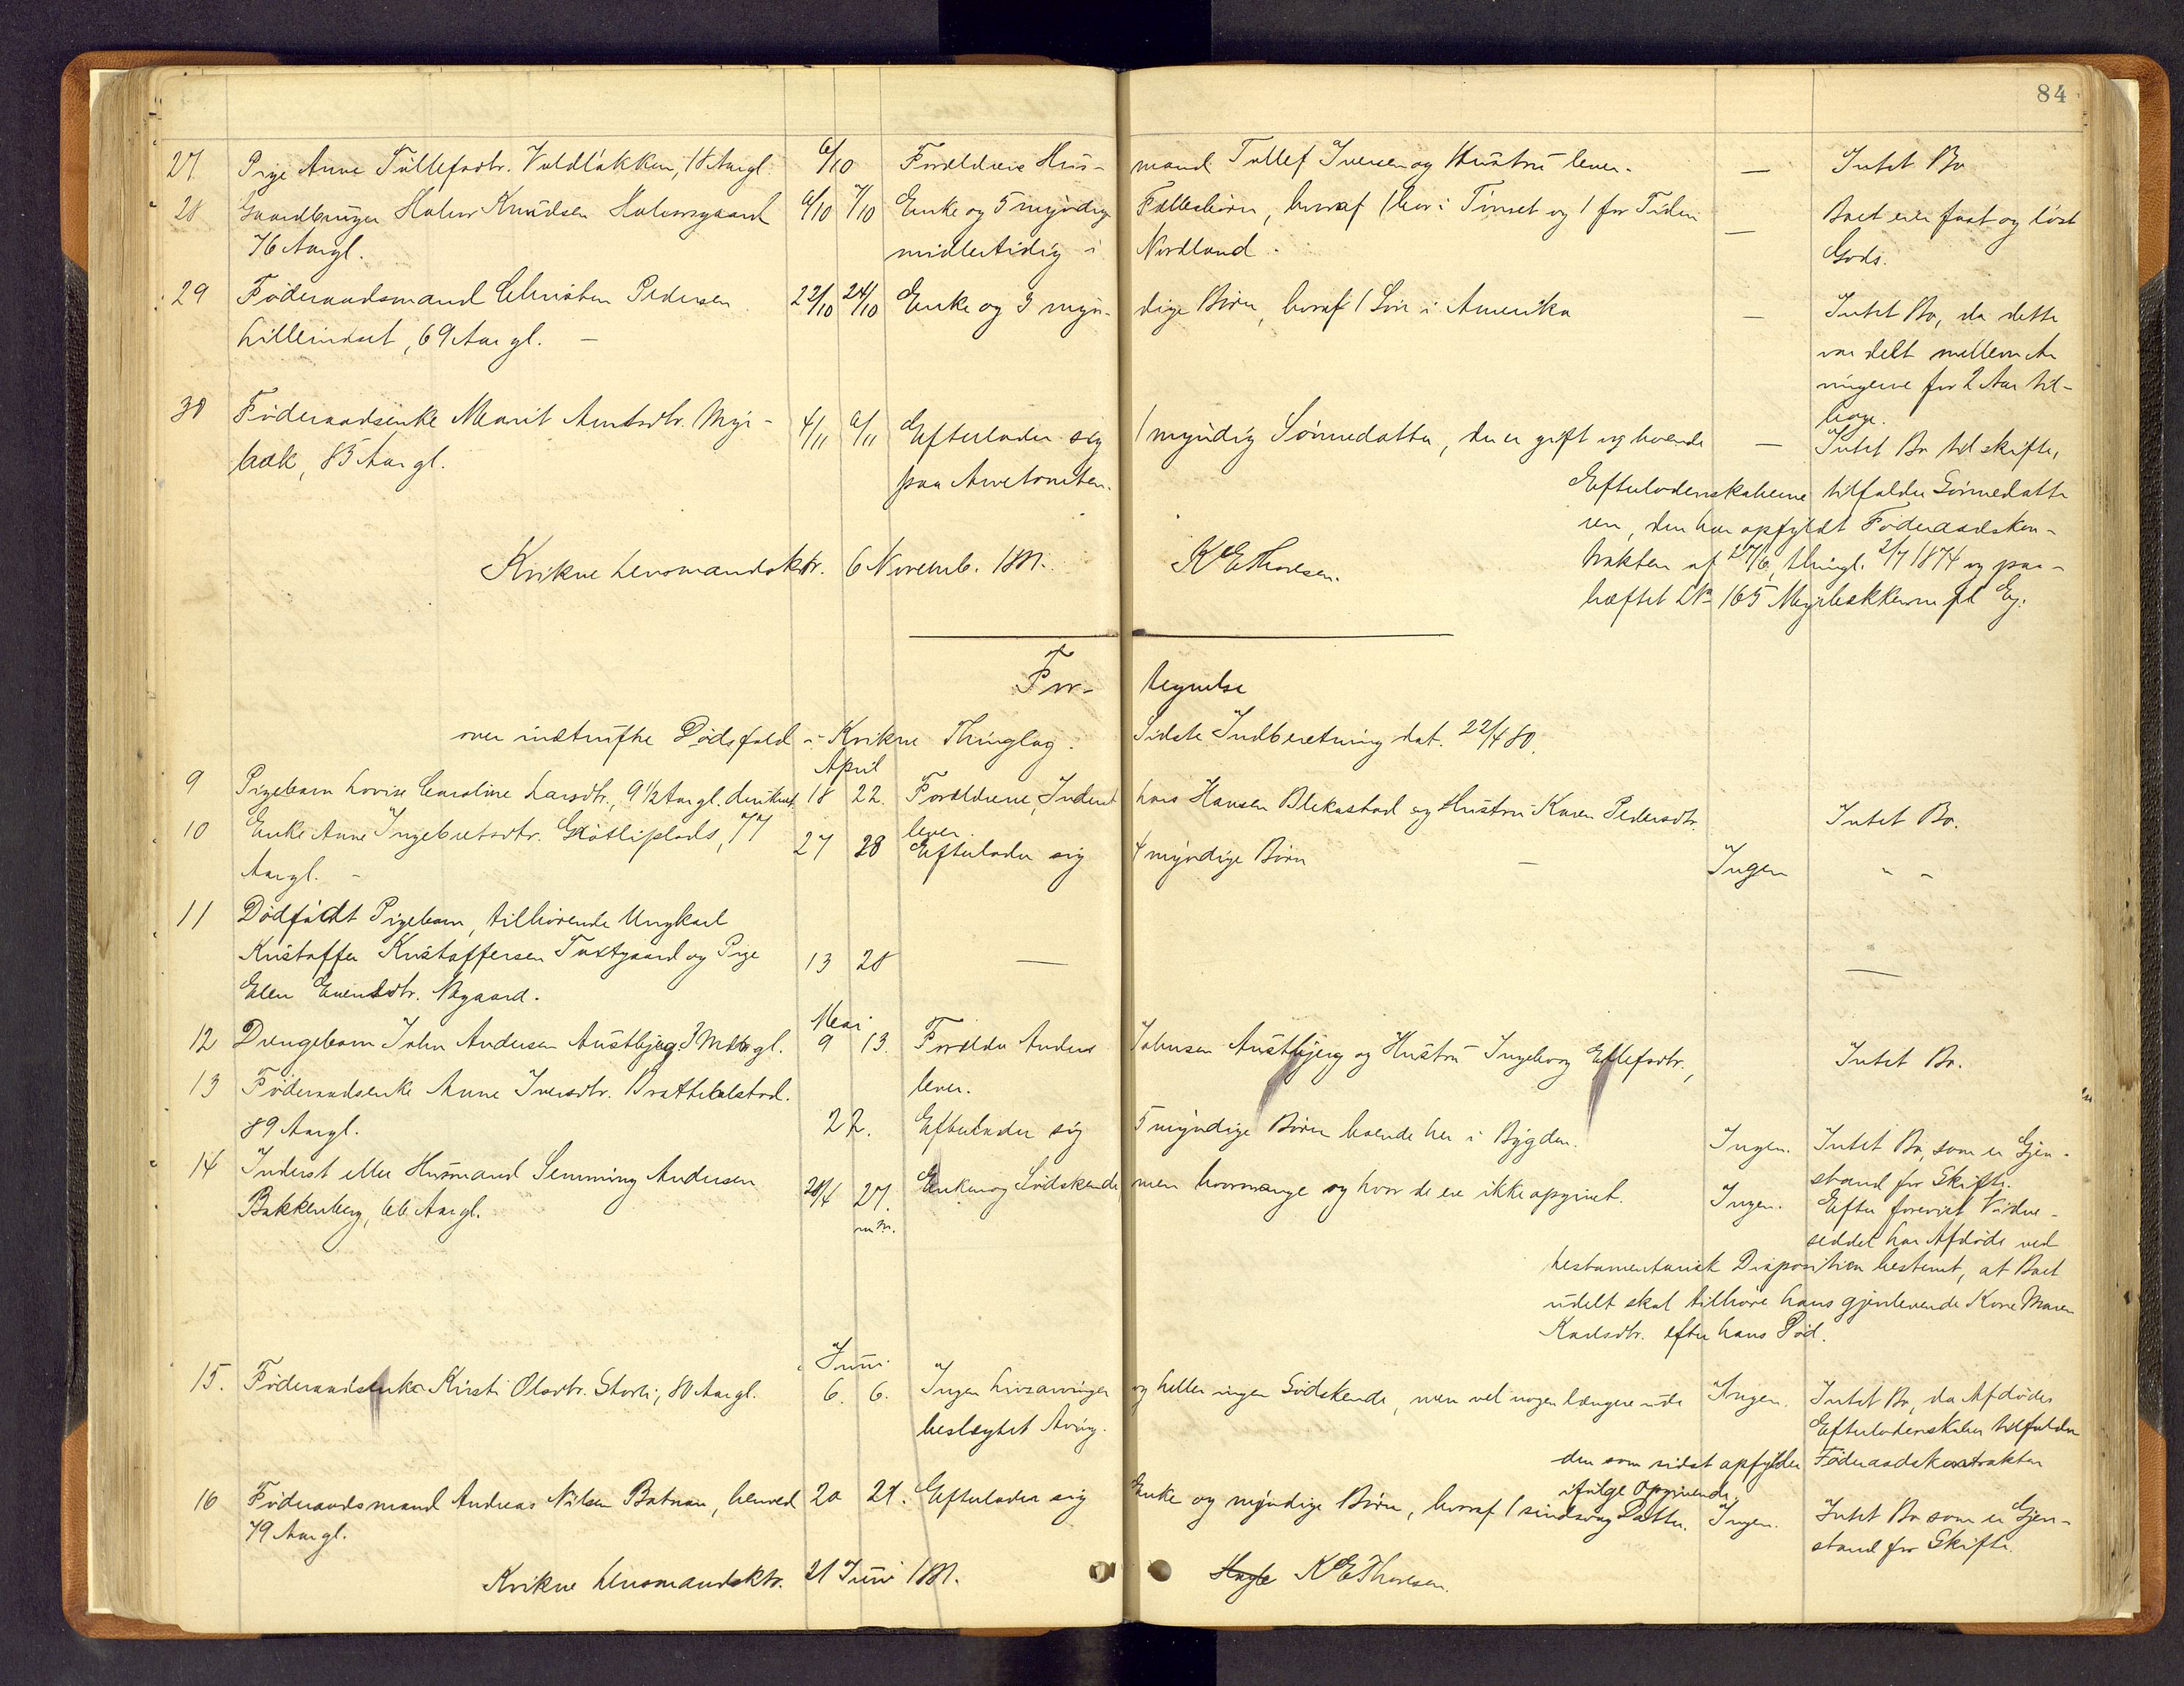 84
27 Pige Anne Tullefsdtr. Voldløkken, 18 Aar gl. 6/10 Forældrene Hus- mand Tollef Iversen og Hustru lever. — Intet Bo
28 Gaardbruger Halvor Knudsen Halvorsgaard 6/10 7/10 Enke og 5 myndige Fællesbørn, hvoraf 1 bor i Tönset og 1 for Tiden — Boet eier fast og löst
76 Aar gl. midlertidig i Nordland. Gods.
29 Föderaadsmand Christen Pedersen 22/10 24/10 Enke og 3 myn- dige Börn, hvoraf 1 Sön i Amerika — Intet Bo, da dette
Lilleindset, 69 Aar gl. — var delt mellem Ar
vingerne for 2 Aar til-
bage.
30 Föderaadsenke Marit Arntsdtr. Myr- 4/11 6/11 Efterlader sig 1 myndig Sönnedatter, der er gift og boende — Intet Bo til skifte,
bæk, 83 Aar gl. paa Arvetomten. Efterladenskaberne tilfalder Sönnedatte
ren, der har opfyldt Föderaadskon-
trakten af 27/6, thingl. 2/7 1874 og paa-
hæftet LN 165 Myrbækkerne fl Ej.
Kvikne Lensmandsktr. 6 Novemb. 1881. K E Thoresen.
For- tegnelse
over indtrufne Dödsfald i Kvikne Thinglag. Sidste Indberetning dat. 22/4 80.
April
9 Pigebarn Lovise Caroline Larsdtr., 9 1/2 Aar gl. 18 22. Forældrene, Inderst Lars Hansen Blekastad og Hustru Karen Pedersdtr. Intet Bo.
lever.
10 Enke Anne Ingebretsdtr. Götliplads, 77 27 28 Efterlader sig 4 myndige Börn — Ingen " "
Aar gl. —
11 Dödfödt Pigebarn, tilhörende Ungkarl
Kristoffer Kristoffersen Toxtgaard og Pige 13 28 — —
Elen Evensdtr. Nygaard.
Mai
12 Drengebarn John Andersen Austbjerg. 3 Mdr gl. 9 13. Forældre Anders Johnsen Austbjerg og Hustru Ingeborg Ellefsdtr., Intet Bo.
lever.
13 Föderaadsenke Anne Iversdtr. Brattebalstad.
89 Aar gl. 22. Efterlader sig 5 myndige Börn boende her i Bygden. Ingen. Intet Bo, som er Gjen-
stand for Skifte.
14 Inderst eller Husmand Semming Andersen 28/4 27. Enken og Södskende men hvormange og hvor de ere ikke opgivet. Ingen. Efter forevist Vidne-
Bakkenberg, 66 Aar gl. seddel har Afdöde ved
testamentarisk Disposition bestemt, at Boet
udelt skal tilhöre hans gjenlevende Kone Maren
Karlsdtr. efter hans Död.
Juni
15. Föderaadsenke Kirsti Olsdtr. Storli, 80 Aar gl. 6. 6. Ingen Livsarvinger og heller ingen Södskende, men vel nogen længere ude Ingen. Intet Bo, da Afdödes
beslegtet Arving. Efterladenskaber tilfalder
den som sidst opfylder Föderaadskontrakten
ifölge Opgivende.
16 Föderaadsmand Andreas Nilsen Botnan, henved 20 21. Efterlader sig Enke og myndige Börn, hvoraf 1 sindsvag Datter. Ingen. Intet Bo som er Gjen-
79 Aar gl. stand for Skifte.
Kvikne Lensmandsktr. 21 Juni 1881. K E Thoresen.